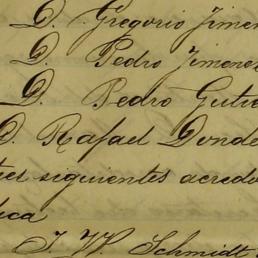 D. Gregorio Jimen
D. Pedro Jimenez
D. Pedro Gutie
D. Rafael Donde
tes siguientes acreedo
ica
J. W. Schmidt